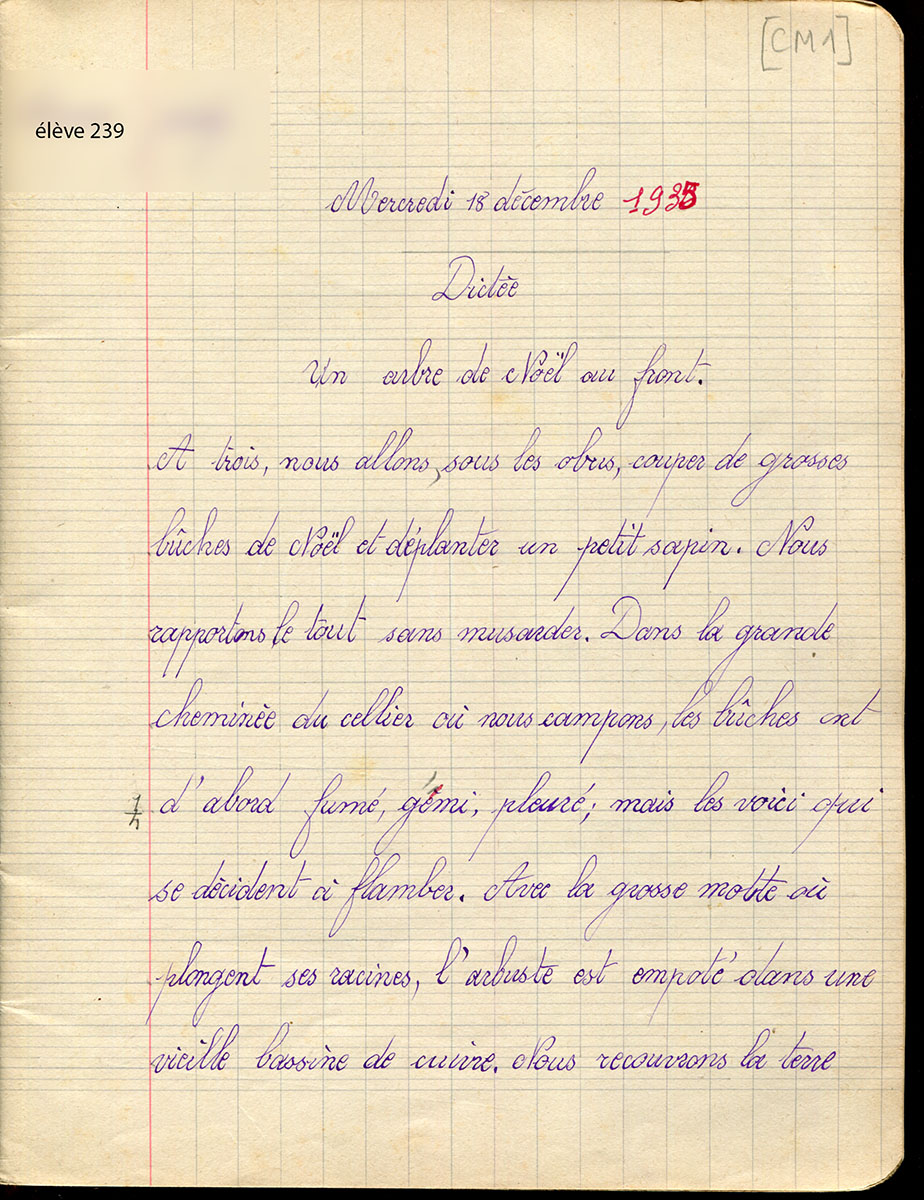 [CM1]
élève 239
Mercredi 18 décembre 1935
Dictée
Un arbre de Noël au front.
A trois, nous allons, sous les obus, couper de grosses
bûches de Noël et déplanter un petit sapin. Nous
rapportons le tout sans musarder. Dans la grande
cheminée du cellier où nous campons, les bûches ont
1/2 d'abord fumé, gémi, pleuré; mais les voici qui
se décident à flamber. Avec la grosse motte où
plongent ses racines, l'arbuste est empoté dans une
vieille bassine de cuivre. Nous recouvrons la terre